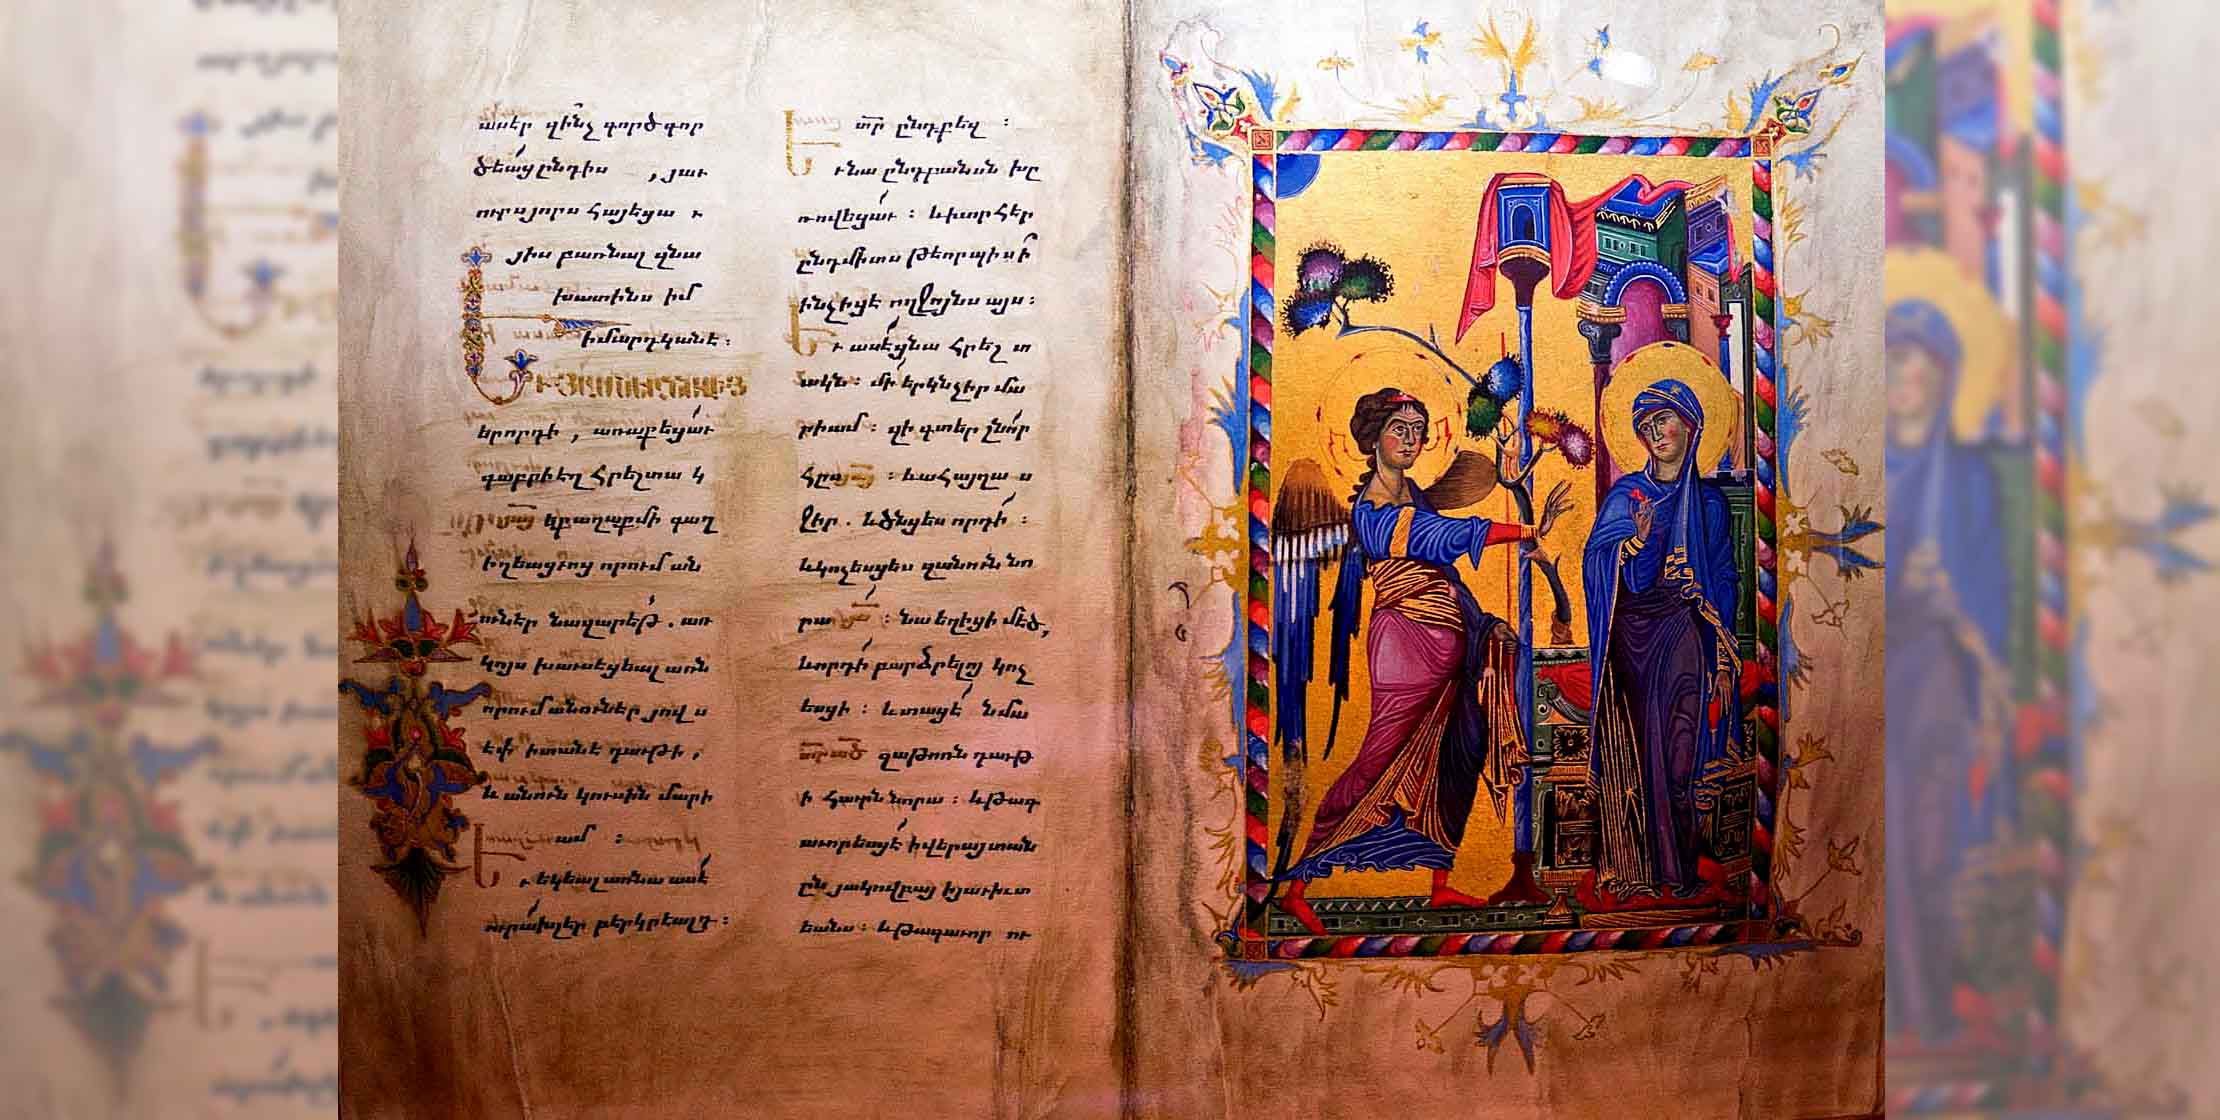 ասէր զինչ գործ գոր
ծեացընդիս , յաւ
ուրսյորս հայեցա ւ
յիս բառնալ զնա
խատինս իմ
իմարդկանէ ։
ԵՒՅԱՄՍԵԱՆՆՎԵՑ
երորդի , առաքեցաւ
գաբրիէղ հրեշտա կ
իքաղաքմի գաղ
իղեացւոց որում ան
ուներ նազարէթ . առ
կոյս խաւսեցեալ առն
որումանուներ յով ս
էփ իտանէ դաւթի ,
և անուն կուսին մարի
ամ ։
Եւ եկեալ առնա ասէ
ուրախլեր բերկրեալդ ։
տր ընդքեզ ։
Եւնա ընդբանսն խը
ռովեցաւ ։ ևխորհէր
ընդմիտս թեորպիսի
ինչիցէ ողջոյնս այս ։
Եւ ասէցնա հրեշ տ
ակն ։ մի երկնչիր մա
րիամ ։ զի գտեր շնոր
ևահայղա ս
ջիր . ևծնցես որդի ։
ևկոչեսցես զանուն նո
րա ։ նա եղիցի մեծ,
ևորդի բարձրելոյ կոչ
եսցի ։ ևտացէ նմա
տրած զաթոռն դաւթ
ի հաւրն նորա ։ ևթագ
աւորեսցէ իվերայ տան
ըն յակովբայ իյաւիտ
եանս ։ ևթագաւոր ու